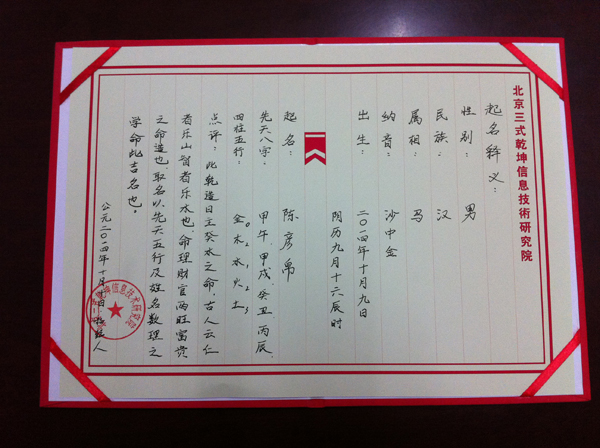 北京三式乾坤信息技術研究院
起名释义：
性别： 男
民族： 汉
属相： 马
纳音： 沙中金
出生： 二〇一四年十月九日
阴历九月十六辰时
起名： 陈彦帛
先天八字： 甲午、甲戌、癸丑、丙辰、
四柱五行： 金0木2水1火2土3
点评： 此乾造日主癸水之命，古人云仁
者乐山智者乐水也，命理财官两旺富贵
之命造也 取名以先天五行及姓名数理之
学命此吉名也。
公元二〇一四年十月 日 人
乾坤信息技术研究院